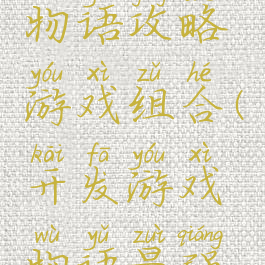 物语攻略
yóu xì zǔ hé
游戏组合(
kāi fā yóu xì
开发游戏
wù yǔ zuì qiáng
物语最强